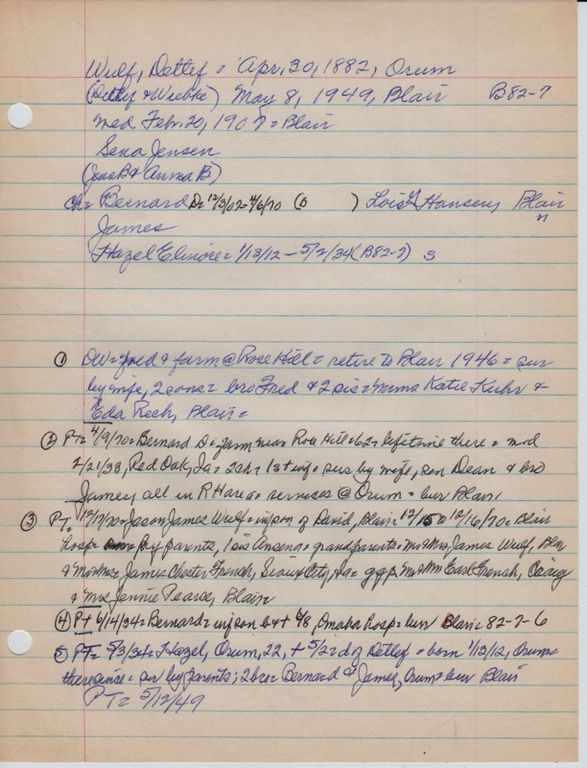 Wulf, Detlef = Apr. 30, 1882, Orum
(Detlef & Wiebke) May 8, 1949, Blair B82-7
med Feb. 20, 1907 = Blair
Sena Jensen
(Jens B & Anna B)
ch= Bernard D= 12/3/07-4/6/70 (6 ) Lois Hansen, Blair
James
Hazel Elinore = 1/13/12 - 5/2/34 (B82-7) S
① DW = & farm @ Rose Hill = retire to Blair 1946 = sur
by wife, 2 sons = bro Fred & 2 sis = Mrs Katie Kuhr &
Eda Rech, Blair =
② PT= 4/9/70 = Bernard D = farm near Rose Hill = 62 = lifetime there = md
2/21/33, Red Oak, Ia = 2ch = 1st inf = sur by wife, son Dean & bro
James, all in R H area = services @ Orum = bur Blair
③ PT= 12/17/70 = Jason James Wulf = inf son of David, Blair = 12/15 12/16/70 = Blair
hosp = by parents, 1 sis = grandparents = Mr & Mrs James Wulf, Blair
& Mr & Mrs James Chester French, Sioux City, Ia = ggp Mr & Mrs Earl French, Craig
& Mrs Jennie Pearce, Blair
④ PT 6/14/34 = Bernard = inf son b & + 6/8, Omaha hosp = bur Blair = 82-7-6
⑤ PT= 5/3/34 = Hazel, Orum, 22, + 5/2 = d of Detlef = born 1/13/12, Orum =
there since = sur by parents; 2 bro = Bernard & James, Orum = bur Blair
PT= 5/12/49